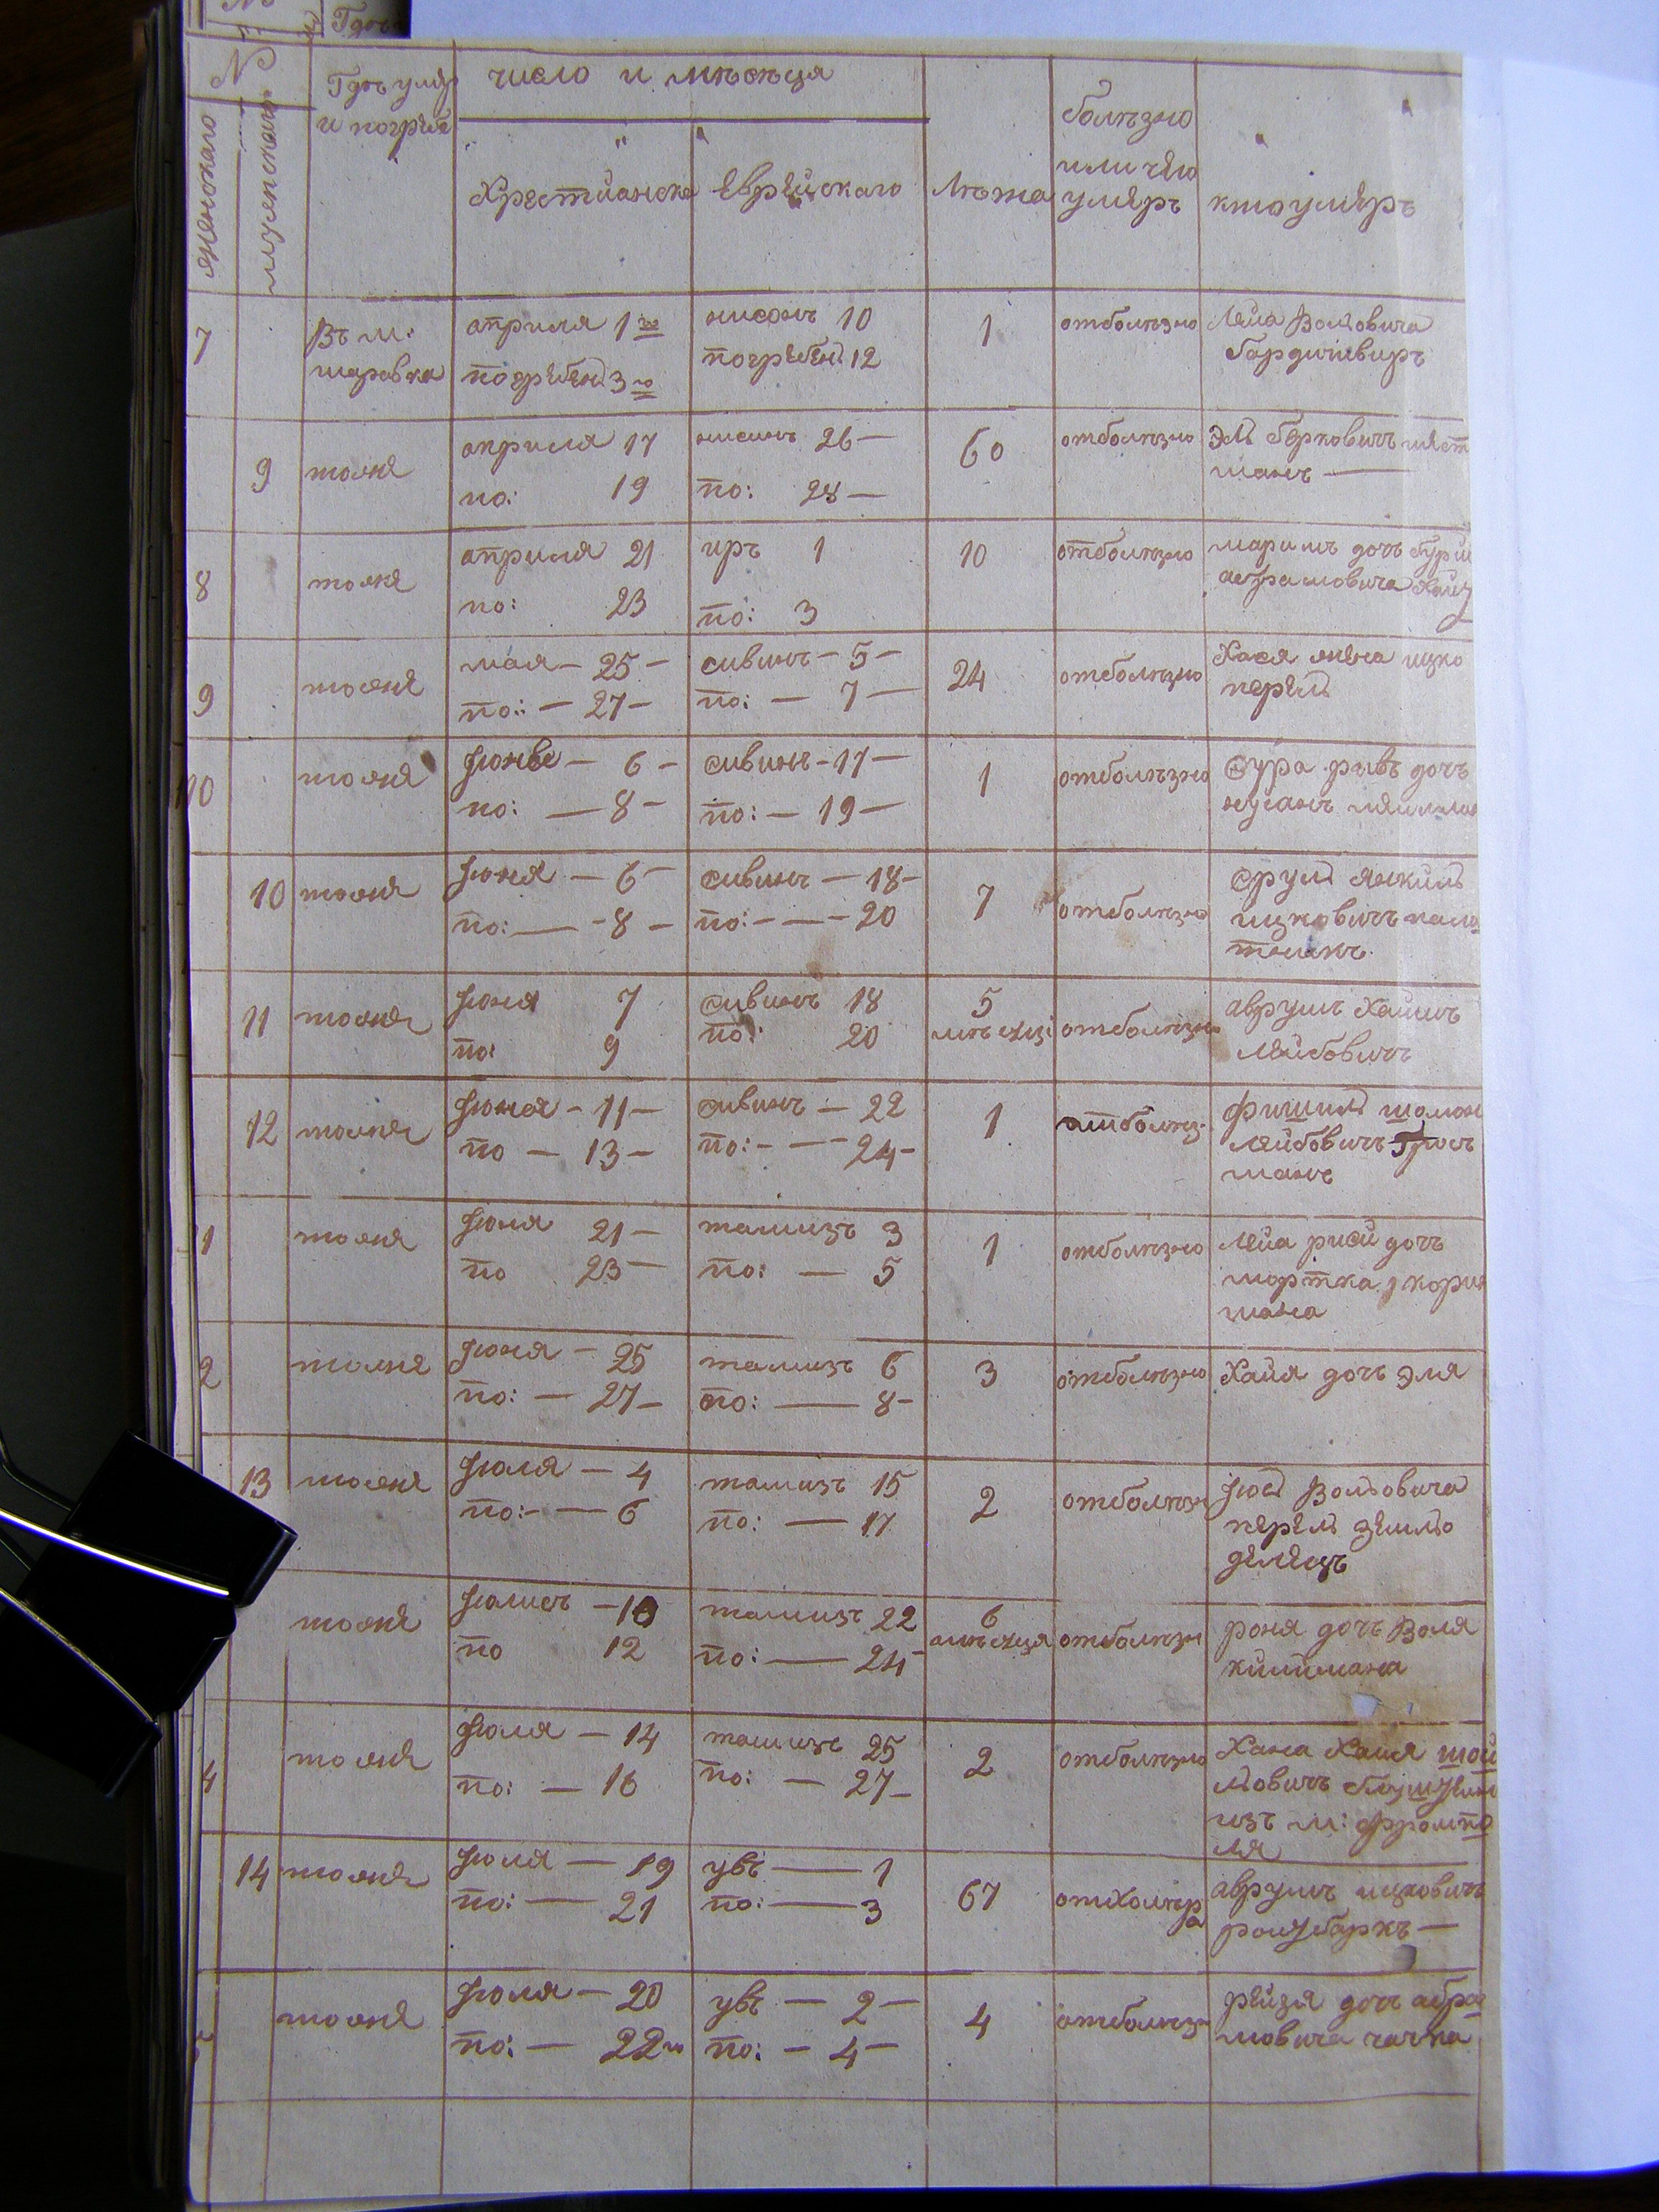 №
Гдѣ умѣр
и погрѣб
число и мѣсяця
женскаго
мужескаго
Хрестиянска
Еврейскаго
Лѣта
болѣзню
или чѣю
умеръ
кто умеръ
7
Въ м:
шаровка
априля 1го
погребен 3го
нисонъ 10
погребен 12
1
отболѣзню
Лейа Волювича
бардичивиръ
9
тожѣ
априля 17
по: 19
нисонъ 26 —
по: 28 —
60
отболѣзню
Эль Берковичъ
манъ —
8
тожѣ
априля 21
по: 23
иръ 1
по: 3
10
отболѣзню
маримъ дочъ
абрамовича
9
тожѣ
мая — 25 —
по: — 27 —
сивинъ — 5 —
по: — 7 —
24
отболѣзню
Хася жена ицко
перель
10
тожѣ
Июня — 6 —
по: — 8 —
сивинъ — 17 —
по: — 19 —
1
отболѣзню
Сура ривъ дочъ
нусанъ
10
тожѣ
Июня — 6 —
по: — 8 —
сивинъ — 18 —
по: — 20
7
отболѣзню
Сруль янкиль
ицковичъ пало
тникъ
11
тожѣ
Июня 7
по: 9
сивинъ 18
по: 20
5
мѣсяці
отболѣзню
аврумъ Хаимъ
Лейбовичъ
12
тожѣ
Июня — 11 —
по — 13 —
сивинъ — 22
по: — 24 —
1
отболѣз
фишиль шлиом
Лейбовичъ Грос
манъ
1
тожѣ
Июня 21 —
по 23 —
тамизъ 3
по: — 5
1
отболѣзню
Лейа рисй дочъ
мортка
мана
2
тожѣ
Июня — 25
по: — 27 —
тамизъ 6
по: — 8 —
3
отболѣзню
Хайя дочъ эля
13
тожѣ
Июля — 4
по: — 6
тамизъ 15
по: — 17
2
отболѣзн
Иось Вольовича
перель землю
делецъ
тожѣ
10
по 12
тамизъ 22
по: — 24
6
мѣсяця
отболѣзн
роня дочъ Воля
килимана
4
тожѣ
Июля — 14
по: — 16
тамизъ 25
по: — 27 —
2
отболѣзню
Хана Хайя шой
ловичъ
изъ м: фрампо
ля
14
тожѣ
Июля — 19
по: — 21
увъ — 1
по: — 3
67
отхолѣра
аврумъ ицковичъ
—
тожѣ
Июля — 20
по: — 22го
увъ — 2 —
по: — 4 —
4
отболѣзн
рейзя дочъ абра
мовича